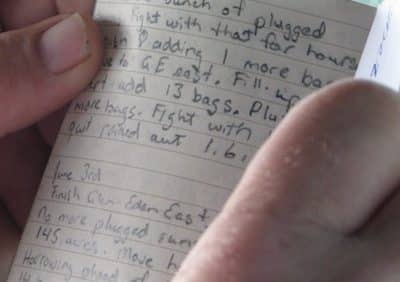 bunch of plugged
fight with that for hours
adding 1 more ba
to G.E east. Fill up
add 13 bags. Plu
more bags. Fight with
quit rained out 1.6.
June 3rd
Finish Glen Eden East
No more plugged
145 acres. Move h
Harrowing ahead of